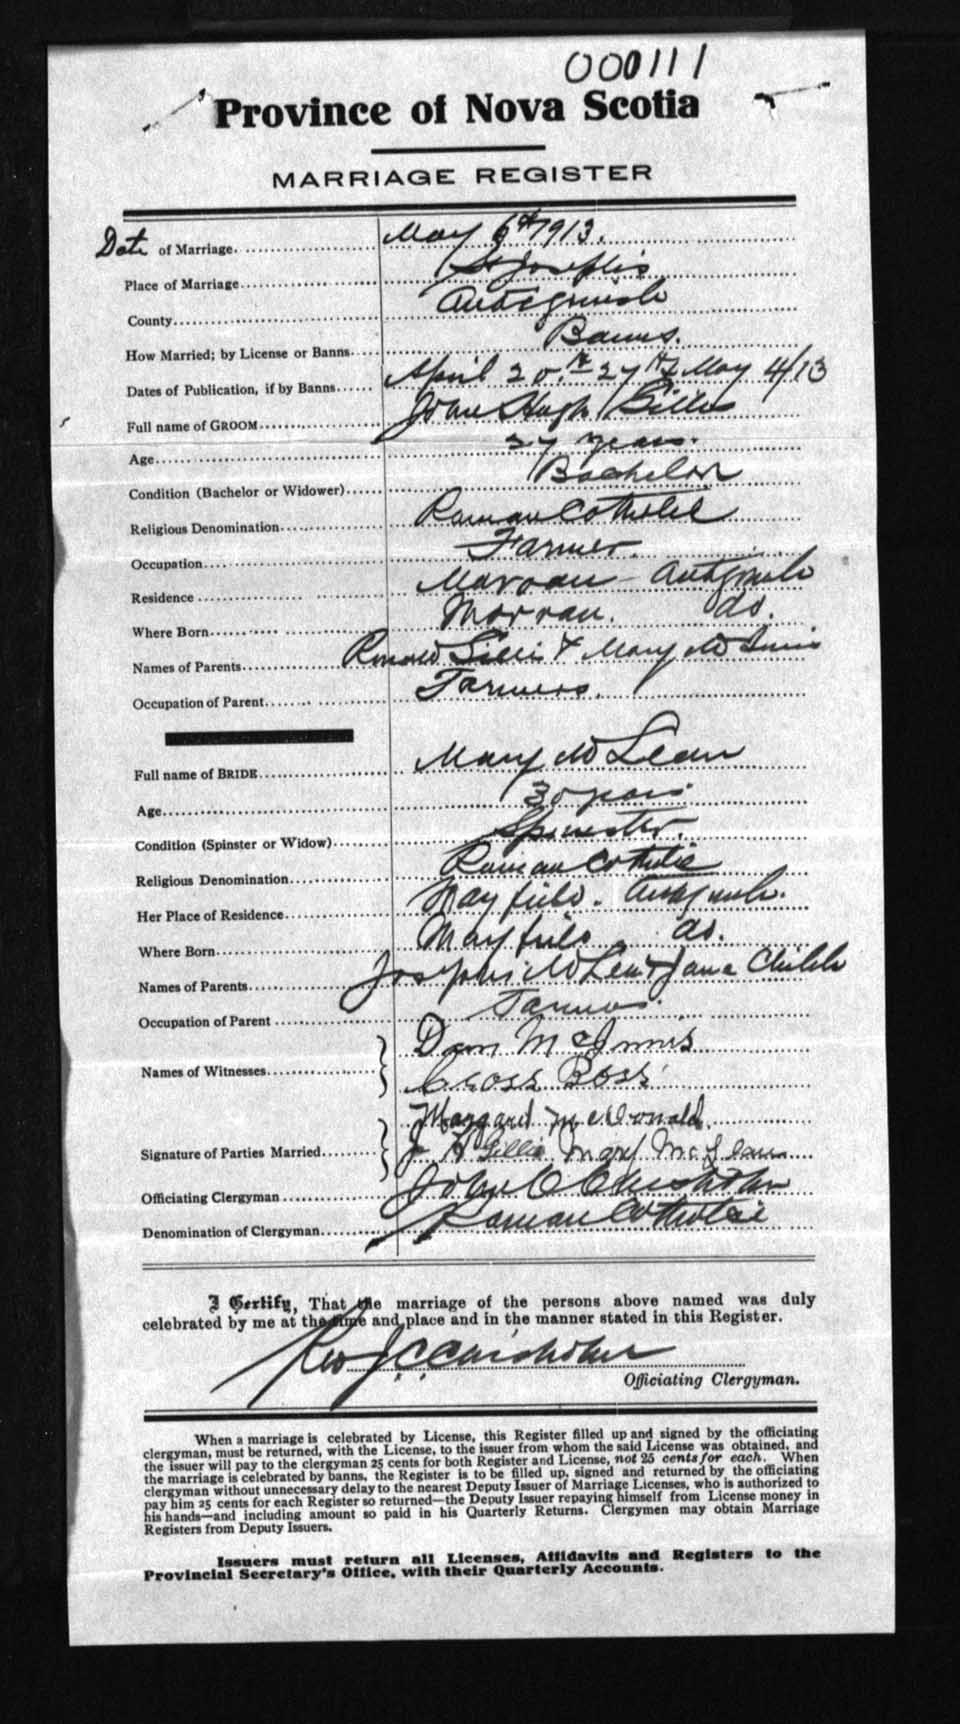 000111
Province of Nova Scotia
MARRIAGE REGISTER
Date of Marriage May 6th 1913.
Place of Marriage St Joseph's
County Antigonish
How Married; by License or Banns Banns.
Dates of Publication, if by Banns April 20th 27th May 4/13
Full name of GROOM John Hugh Gillis
Age 27 years.
Condition (Bachelor or Widower) Bachelor
Religious Denomination Roman Catholic
Occupation Farmer.
Residence Morvan - Antigonish
Where Born Morvan. do.
Names of Parents Ronald Gillis & Mary McInnis
Occupation of Parent Farmers.
Full name of BRIDE Mary McLean
Age 30 years
Condition (Spinster or Widow) Spinster.
Religious Denomination Roman Catholic
Her Place of Residence Mayfield. Antigonish.
Where Born Mayfield do.
Names of Parents McLean & Jane
Occupation of Parent Farmer.
Names of Witnesses Dan McInnis
Cross Ross
Margaret McDonald.
Signature of Parties Married J H Gillis Mary McLean
Officiating Clergyman John C Chisholm
Denomination of Clergyman Roman Catholic
I Certify, That the marriage of the persons above named was duly
celebrated by me at the time and place and in the manner stated in this Register.
Rev J C Chisholm
Officiating Clergyman.
When a marriage is celebrated by License, this Register filled up and signed by the officiating
clergyman, must be returned, with the License, to the issuer from whom the said License was obtained, and
the issuer will pay to the clergyman 25 cents for both Register and License, not 25 cents for each. When
the marriage is celebrated by banns, the Register is to be filled up, signed and returned by the officiating
clergyman without unnecessary delay to the nearest Deputy Issuer of Marriage Licenses, who is authorized to
pay him 25 cents for each Register so returned—the Deputy Issuer repaying himself from License money in
his hands—and including amount so paid in his Quarterly Returns. Clergymen may obtain Marriage
Registers from Deputy Issuers.
Issuers must return all Licenses, Affidavits and Registers to the
Provincial Secretary's Office, with their Quarterly Accounts.